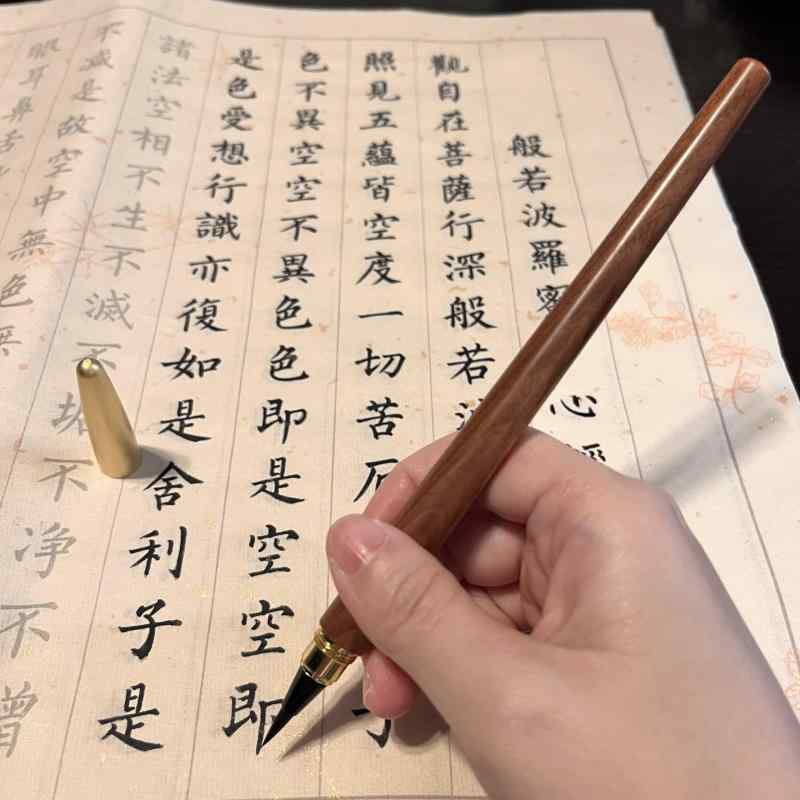 般若波羅 心經
觀自在菩薩行深般若波
照見五蘊皆空度一切苦厄 子
色不異空空不異色色即是空空即
是色受想行識亦復如是舍利子是
諸法空相不生不滅不垢不净不增
不減是故空中無色無
眼耳鼻舌